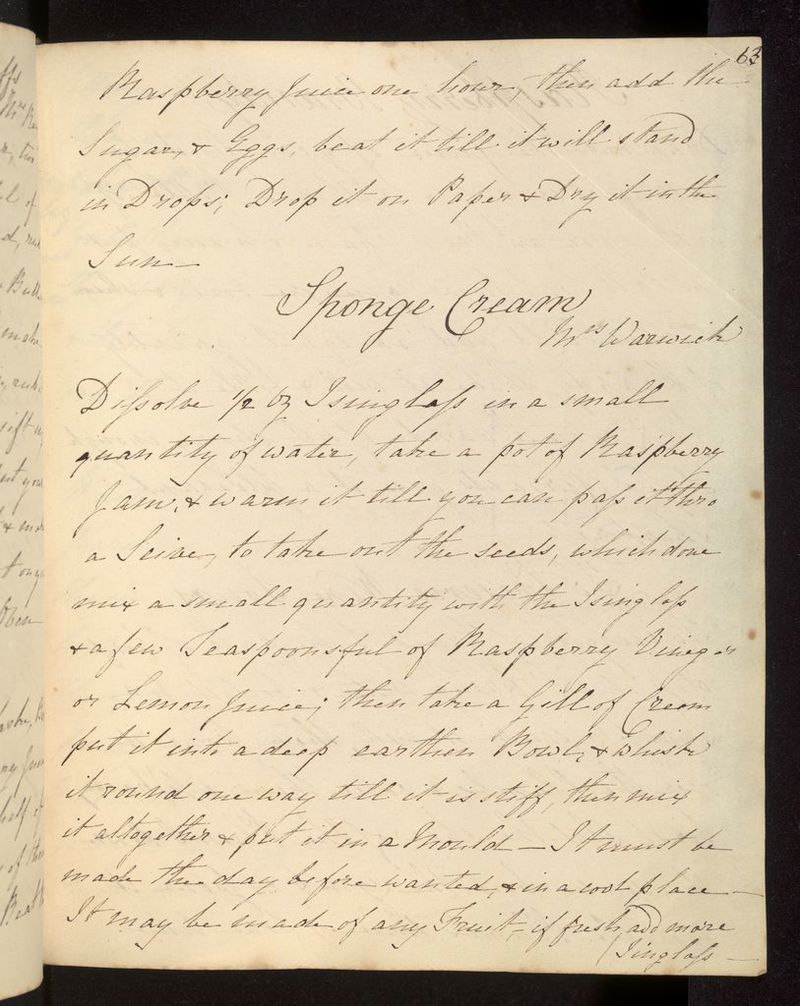 63
Raspberry Juice one hour then add the
Sugar, & Eggs, beat it till it will stand
in Drops; Drop it on Paper & Dry it in the
Sun —
Sponge Cream
Mrs Warwick
Dissolve 1/2 oz Isinglass in a small
quantity of water, take a pot of Raspberry
Jam, & warm it till you can pass it thro
a Seive, to take out the seeds, which done
mix a small quantity with the Isinglass
& a few Teaspoonsful of Raspberry Vinegar
or Lemon Juice; then take a Gill of Cream
put it into a deep earthen Bowl, & Whisk
it round one way till it is stiff, then mix
it altogether & put it in a Mould — It must be
made the day before wanted, & in a cool place —
It may be made of any Fruit, if fresh add more
Isinglass —